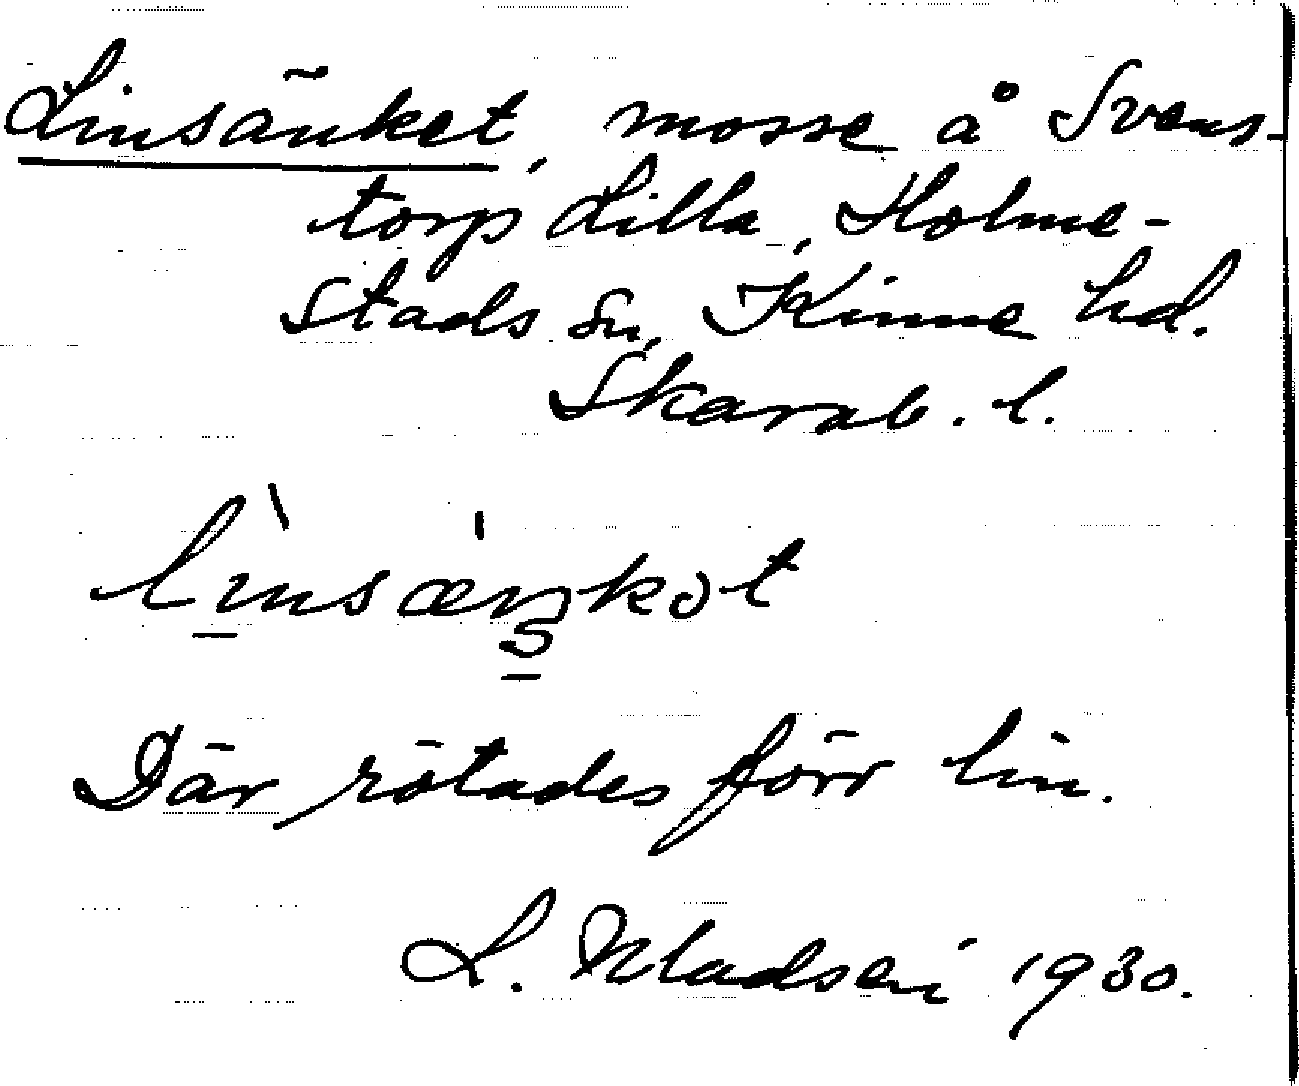 Linsänket, mosse å Svens-
torp Lilla, Holme-
stads sn, Kinne hd.
Skarab. l.
lìnsæŋkot
Där rötades förr lin.
L. 1930.